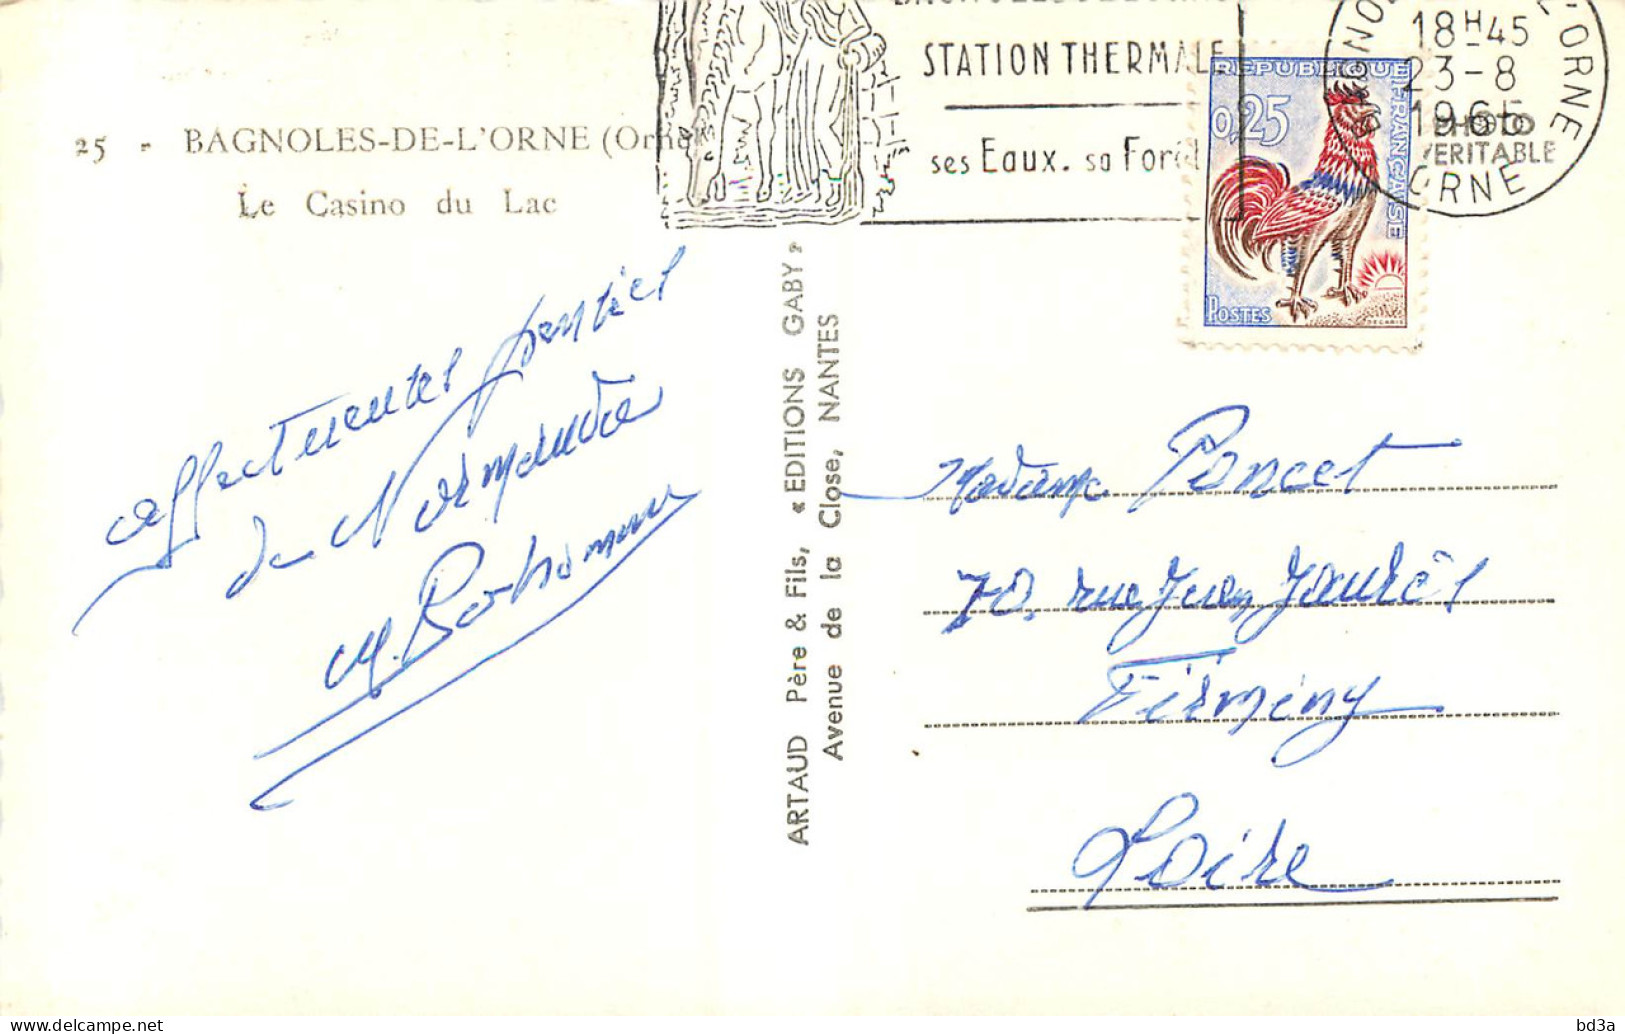 25 - BAGNOLES-DE-L'ORNE (Orne)
Le Casino du Lac
STATION THERMALE
ses Eaux. sa Forêt
18H45
23-8
1965
ORNE
PHOTO
VERITABLE
REPUBLIQUE FRANÇAISE
0,25
POSTES
DECARIS
affectueuses pensées
de Normandie
ARTAUD Père & Fils, « EDITIONS GABY »
Avenue de la Close, NANTES
Madame Poncet
70, rue Jean Jaurès
Firminy
Loire
bd3a